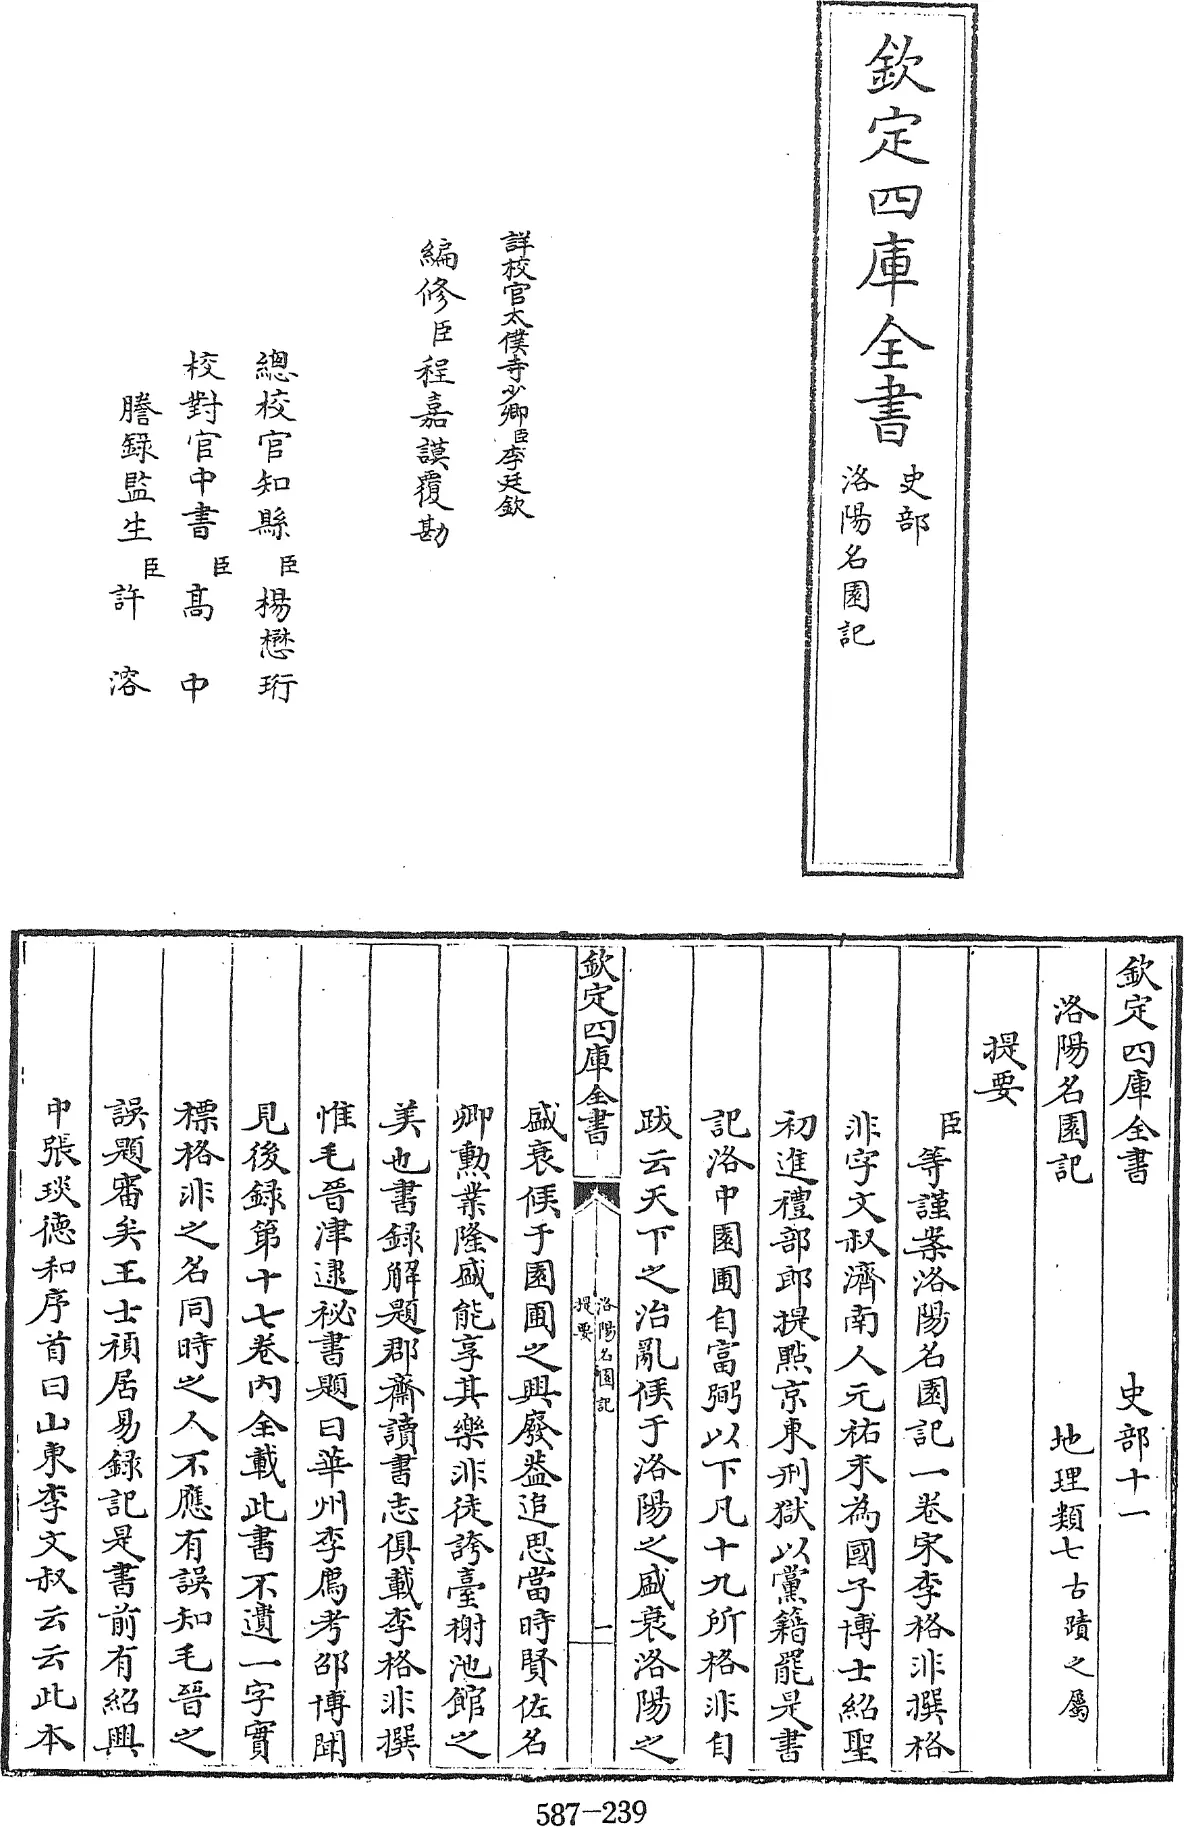 欽定四庫全書
史部
洛陽名園記
詳校官太僕寺少卿臣李廷欽
編修臣程嘉謨覆勘
總校官知縣臣楊懋珩
校對官中書臣高中
謄錄監生臣許溶
欽定四庫全書 史部十一
洛陽名園記 地理類七古蹟之屬
提要
臣等謹案洛陽名園記一卷宋李格非撰格
非字文叔濟南人元祐末為國子博士紹聖
初進禮部郎提點京東刑獄以黨籍罷是書
記洛中園圃自富弼以下凡十九所格非自
跋云天下之治亂候于洛陽之盛衰洛陽之
欽定四庫全書
洛陽名園記
提要
一
盛衰候于園圃之興廢蓋追思當時賢佐名
卿勲業隆盛能享其樂非徒誇臺榭池館之
美也書録解題郡齋讀書志俱載李格非撰
惟毛晉津逮秘書題曰華州李廌考邵博聞
見後録第十七卷内全載此書不遺一字實
標格非之名同時之人不應有誤知毛晉之
誤題審矣王士禎居易録記是書前有紹興
中張琰德和序首曰山東李文叔云云此本
587-239